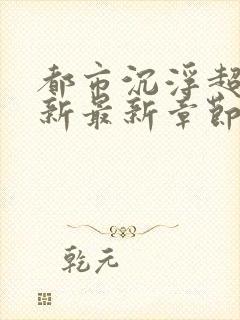 都市沉浮超
新最新章節
乾元